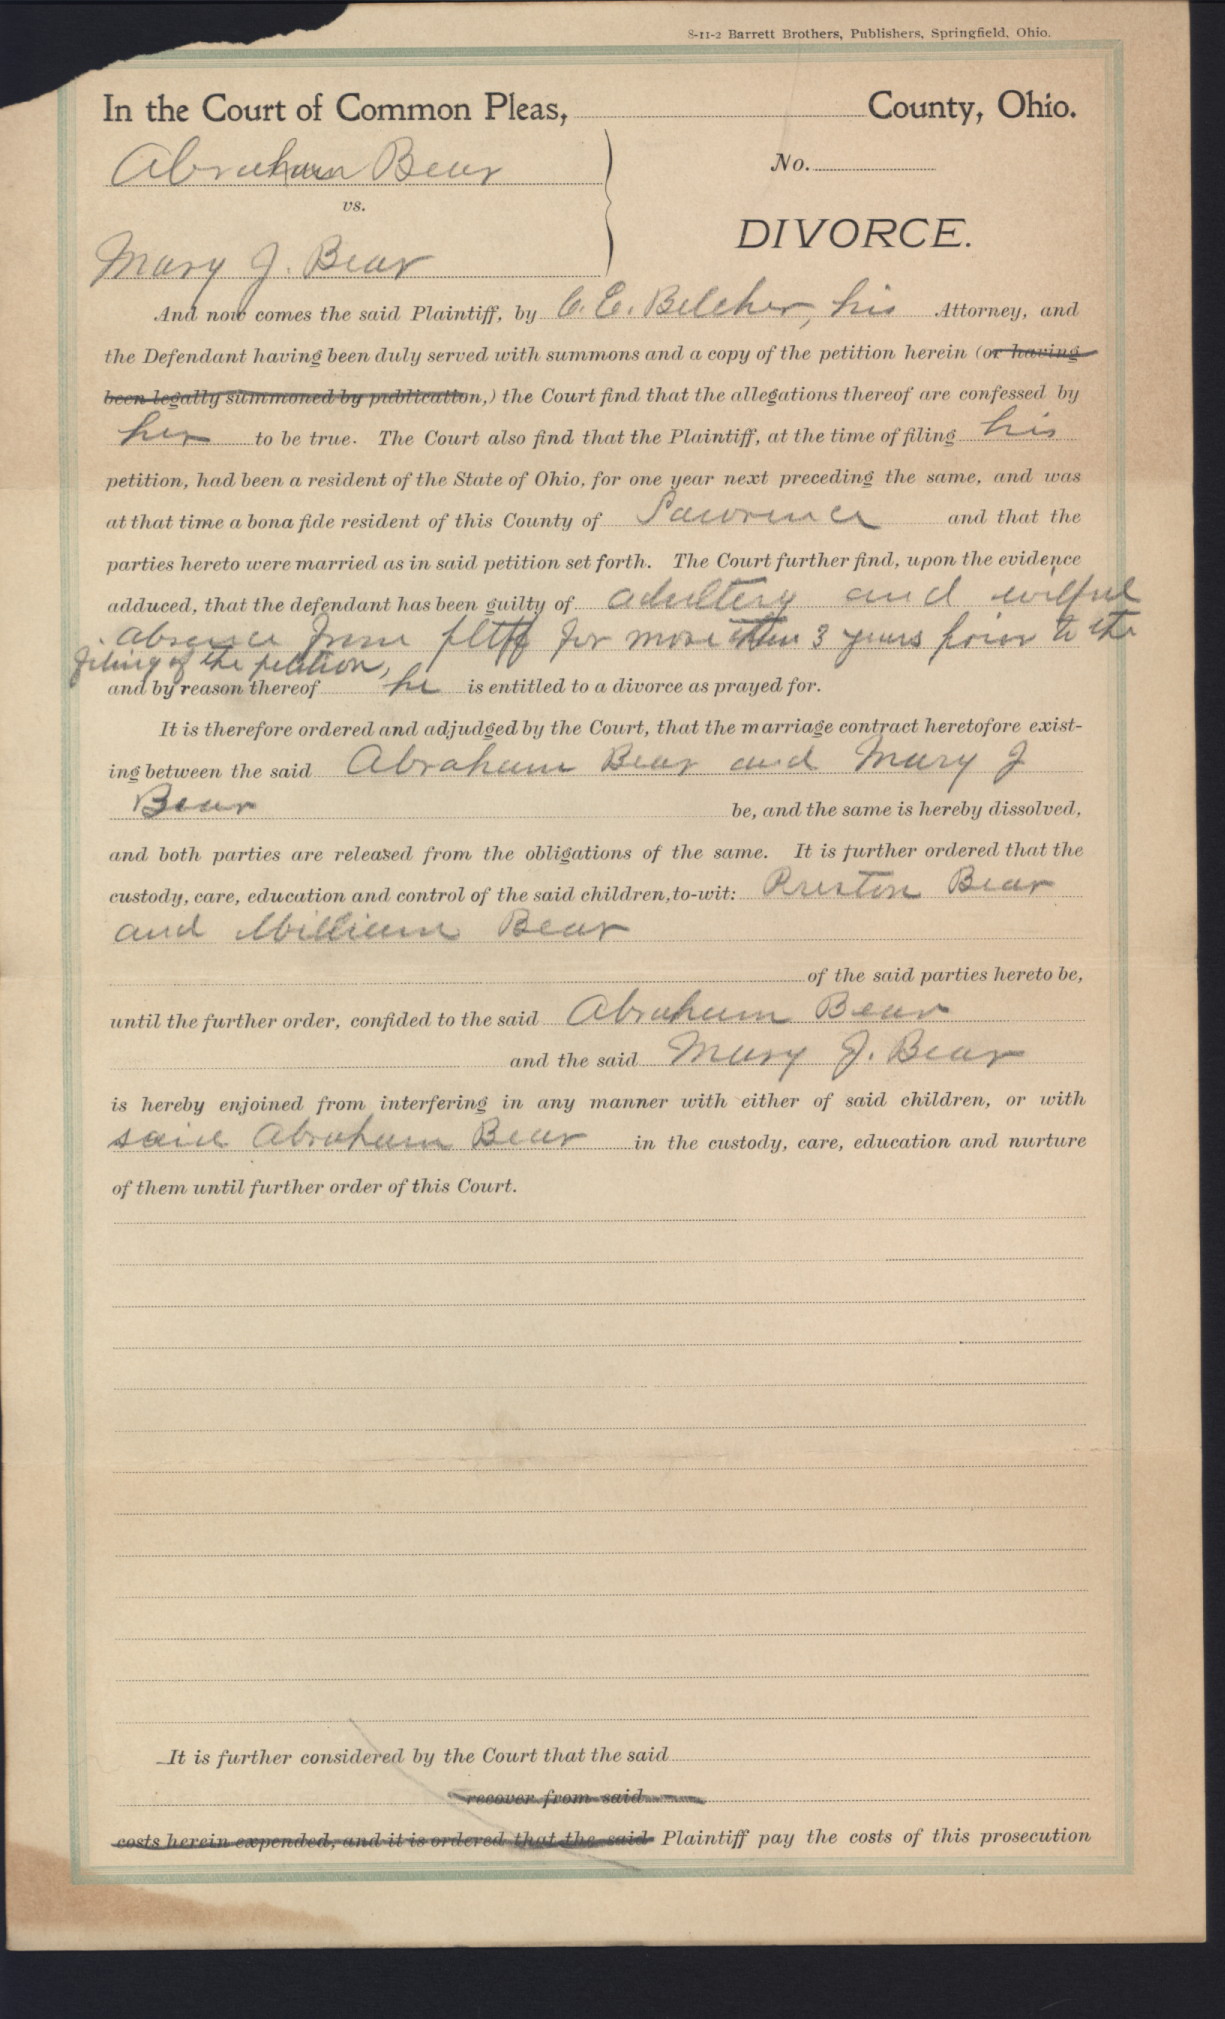 8-11-2 Barrett Brothers, Publishers, Springfield, Ohio.
In the Court of Common Pleas, County, Ohio.
Abraham Bear
No.
vs.
DIVORCE.
Mary J. Bear
And now comes the said Plaintiff, by C. E. Belcher, his Attorney, and
the Defendant having been duly served with summons and a copy of the petition herein (or having
been legally summoned by publication,) the Court find that the allegations thereof are confessed by
her to be true. The Court also find that the Plaintiff, at the time of filing his
petition, had been a resident of the State of Ohio, for one year next preceding the same, and was
at that time a bona fide resident of this County of Lawrence and that the
parties hereto were married as in said petition set forth. The Court further find, upon the evidence
adduced, that the defendant has been guilty of adultery and wilful
absence from pltff for more than 3 years prior to the
filing of the petition,
and by reason thereof he is entitled to a divorce as prayed for.
It is therefore ordered and adjudged by the Court, that the marriage contract heretofore exist-
ing between the said Abraham Bear and Mary J
Bear be, and the same is hereby dissolved,
and both parties are released from the obligations of the same. It is further ordered that the
custody, care, education and control of the said children, to-wit: Preston Bear
and William Bear
of the said parties hereto be,
until the further order, confided to the said Abraham Bear
and the said Mary J. Bear
is hereby enjoined from interfering in any manner with either of said children, or with
said Abraham Bear in the custody, care, education and nurture
of them until further order of this Court.
It is further considered by the Court that the said
recover from said
costs herein expended, and it is ordered that the said Plaintiff pay the costs of this prosecution